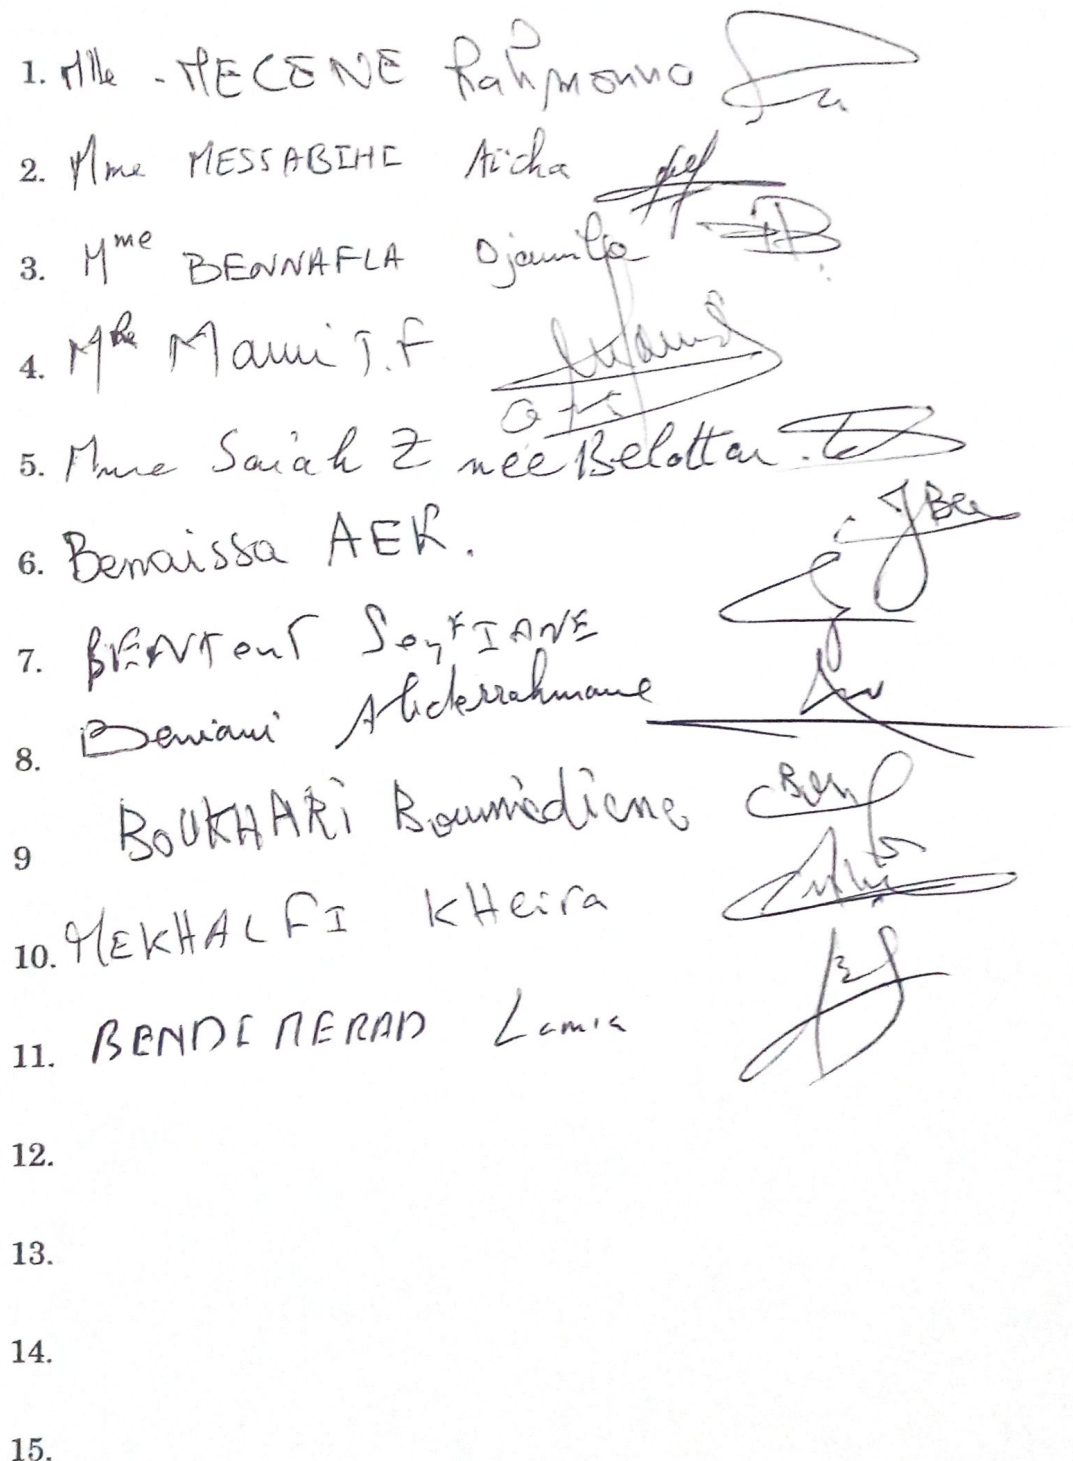 1. Mlle - MECENE Rahmouna
2. Mme MESSABIHI Aïcha
3. Mme BENNAFLA Djamila
4. Mme Mami J.F
5. Mme Saiah Z née Belottar.
6. Benaissa AEK.
7. BENTOUT SoyFIANE
8. Beniani Abderrahmane
9 BOUKHARi Boumédiene
10. MEKHALFI KHeira
11. BENDIMERAD Lamia
12.
13.
14.
15.